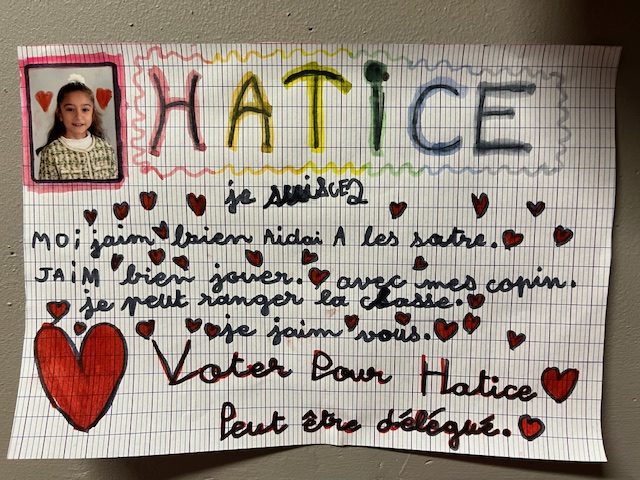 HATiCE
je suisCE2
MOi jaim bien Aidai A les satre.
JAiM bien jouer. avec mes copin.
je peut ranger la classe.
je jaim vous.
Voter Pour Hatice
Peut être délégué.